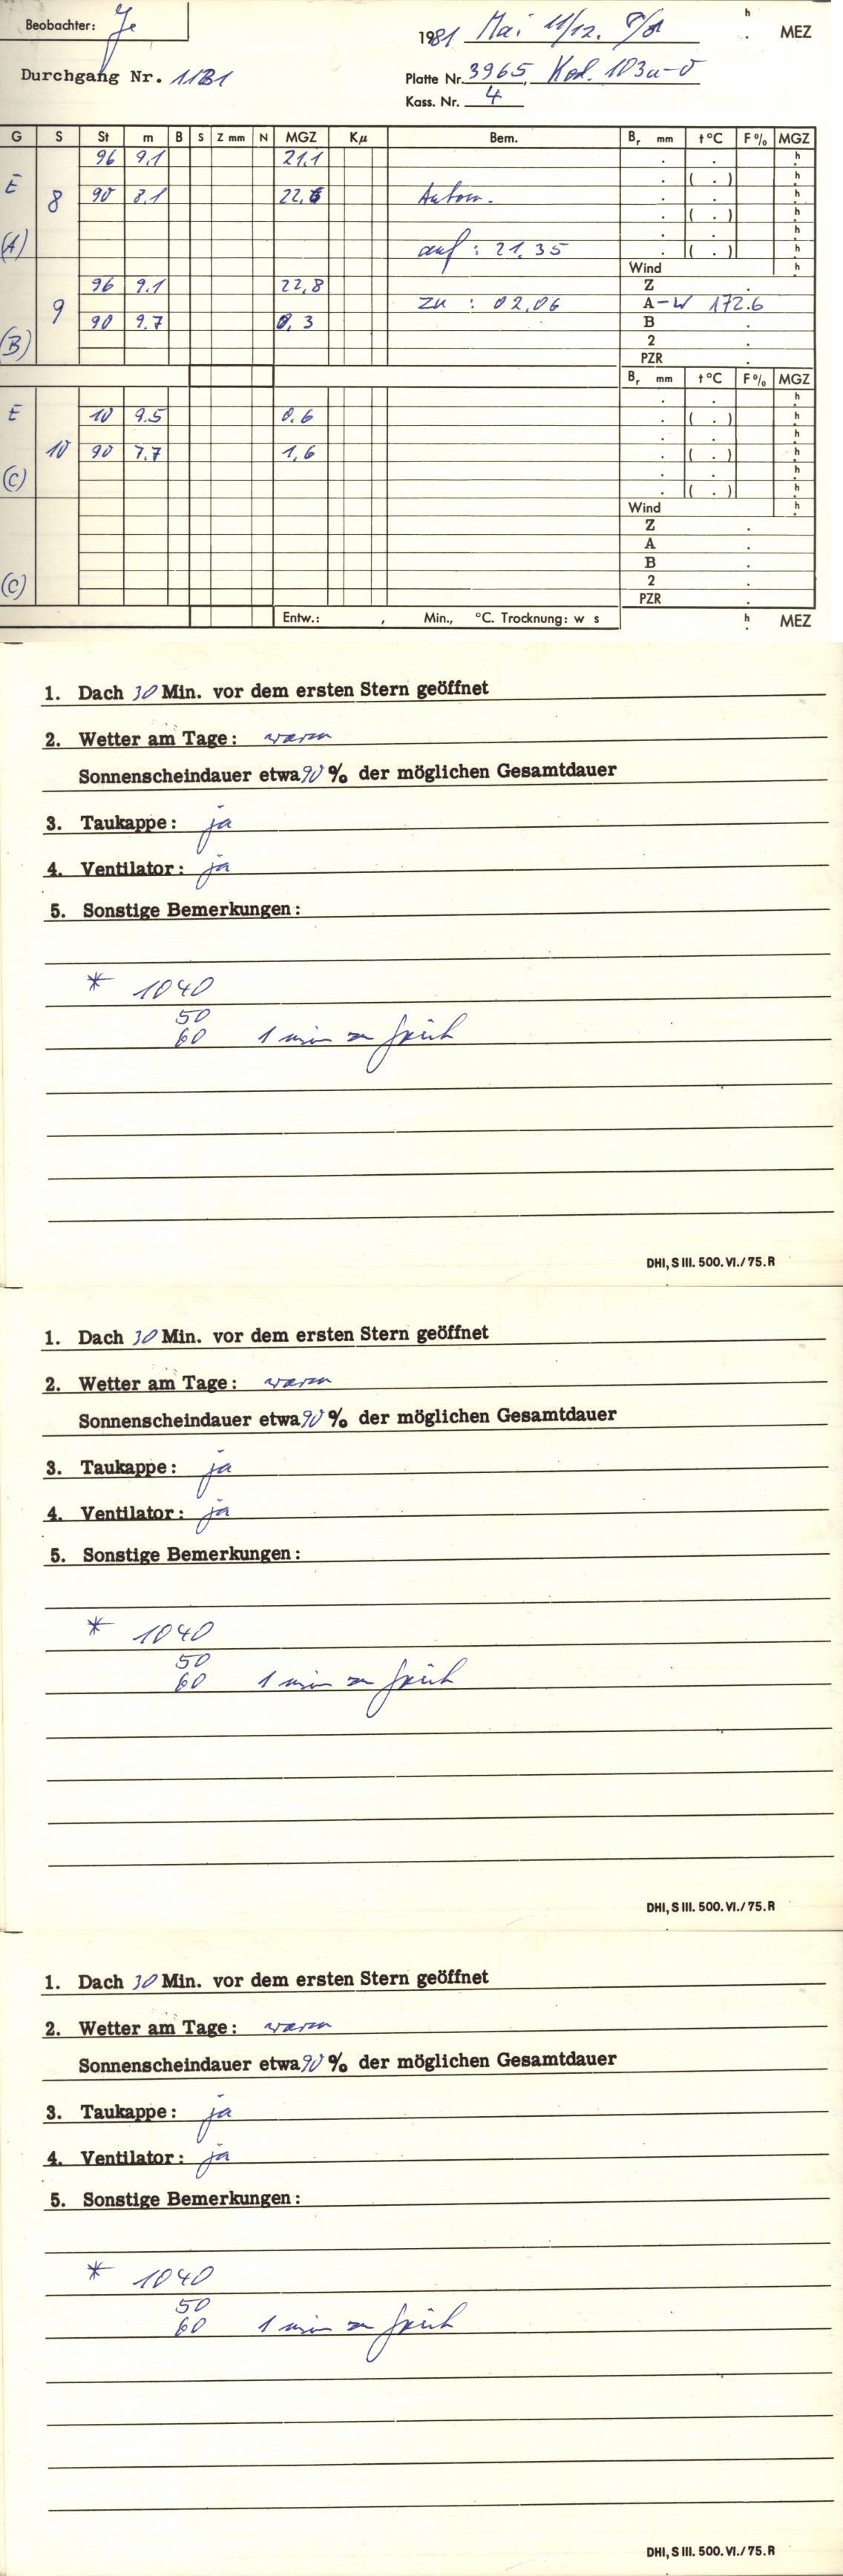 Beobachter: Je
1981 Mai 11/12. h . MEZ
Durchgang Nr. 1181
Platte Nr. 3965, Kod. 103a-0
Kass. Nr. 4
G S St m B S Z mm N MGZ Kμ Bem. Br mm t °C F% MGZ
96 9.1 21.1 h
E ( . ) h
8 90 8.1 22,6 Autom. h
( . ) h
h
(A) auf : 21.35 ( . ) h
Wind h
96 9.1 22,8 Z .
9 zu : 02.06 A-W 172.6
90 9.7 0,3 B .
(B) 2 .
PZR .
Br mm t °C F% MGZ
h
E 10 9.5 0.6 ( . ) h
h
10 90 7.7 1,6 ( . ) h
h
(C) ( . ) h
Wind h
Z .
A .
B .
(C) 2 .
PZR .
Entw.: , Min., °C. Trocknung: w s h . MEZ
1. Dach 30 Min. vor dem ersten Stern geöffnet
2. Wetter am Tage: warm
Sonnenscheindauer etwa 90 % der möglichen Gesamtdauer
3. Taukappe: ja
4. Ventilator: ja
5. Sonstige Bemerkungen:
* 1040
50
60 1 min zu früh
DHI, S III. 500. VI./75. R
1. Dach 30 Min. vor dem ersten Stern geöffnet
2. Wetter am Tage: warm
Sonnenscheindauer etwa 90 % der möglichen Gesamtdauer
3. Taukappe: ja
4. Ventilator: ja
5. Sonstige Bemerkungen:
* 1040
50
60 1 min zu früh
DHI, S III. 500. VI./75. R
1. Dach 30 Min. vor dem ersten Stern geöffnet
2. Wetter am Tage: warm
Sonnenscheindauer etwa 90 % der möglichen Gesamtdauer
3. Taukappe: ja
4. Ventilator: ja
5. Sonstige Bemerkungen:
* 1040
50
60 1 min zu früh
DHI, S III. 500. VI./75. R